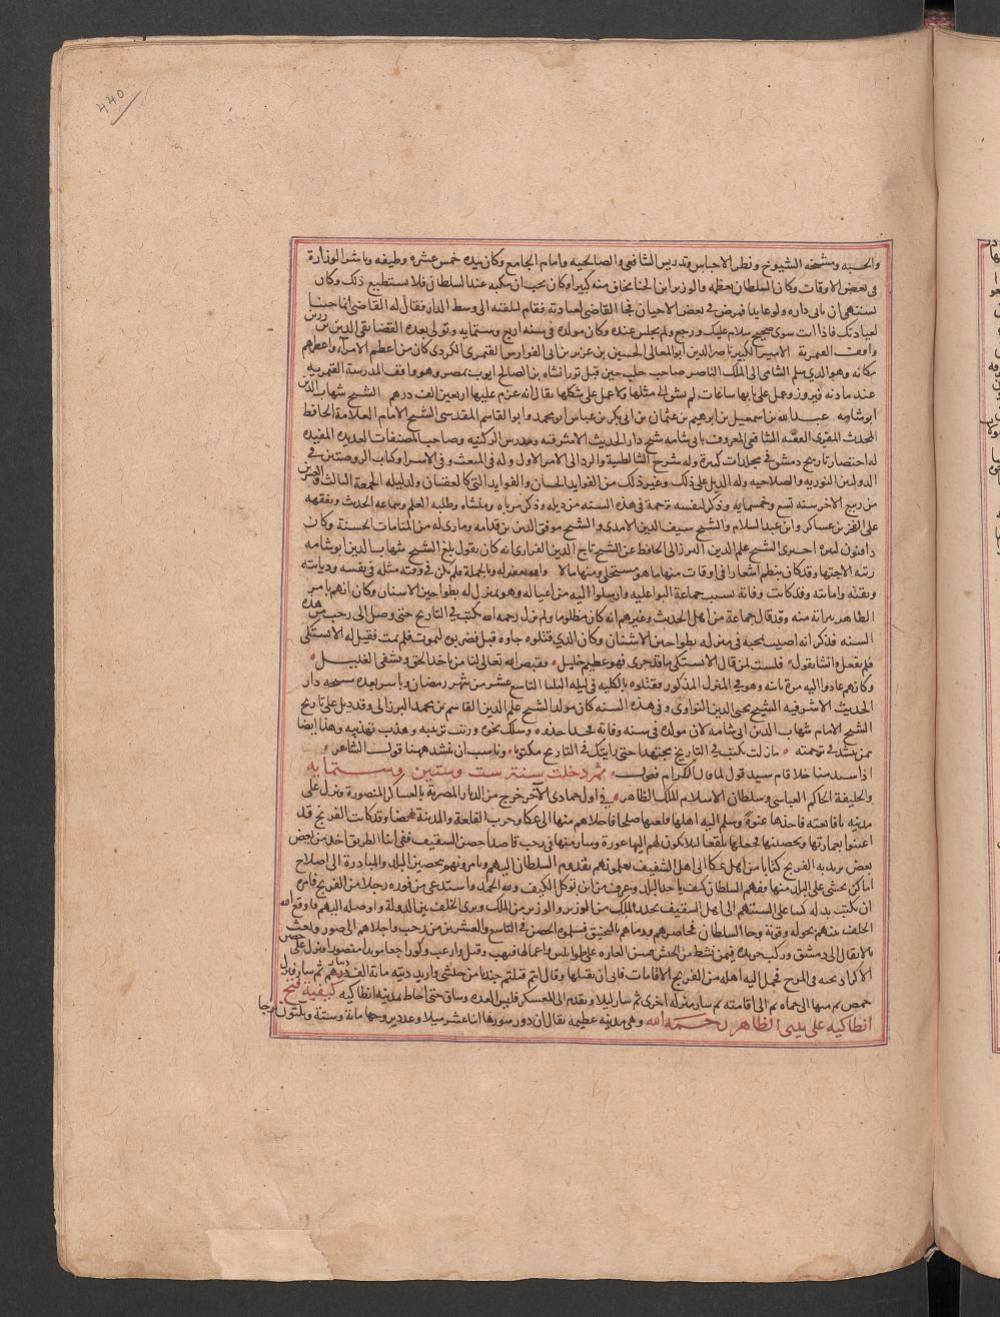 ٤٤٥
والحسبه ومشيخه الشيوخ ونظر الاحباس وتدريس الشافعى والصالحيه وامامه الجامع وكان بيده خمس عشره وظيفه وباشر الوزارة
فى بعض الاوقات وكان السلطان يعظمه والوزير ابن الحنا يخاف منه كثيرا وكان يحب ان ينكبه عند السلطان فلا يستطيع ذلك وكان
يشتهى ان ياتى داره ولو عايدا فمرض فى بعض الاحيان فجا القاضى لعيادته فقام لتلقيه الى وسط الدار فقال له القاضى انما جينا
لعيادتك فاذا انت سوى صحيح سلام عليك ورجع ولم يجلس عنده وكان مولده فى سنه اربع وستمايه وتولى بعده القضا تقى الدين بن رزين
واقف القيمريه الامير الكبير ناصر الدين ابو المعالى الحسين بن عزيز بن ابى الفوارس القيمرى الكردى كان من اعظم الامرا واعظمهم
مكانه وهو الذى سلم الشام الى الملك الناصر صاحب حلب حين قتل تورانشاه بن الصالح ايوب بمصر وهو واقف المدرسة القيمريه
عند مادنه فيروز وعمل على بابها ساعات لم يسبق الى مثلها ولا عمل على شكلها يقال انه غرم عليها اربعين الف درهم الشيخ شهاب الدين
ابو شامه عبد الله بن اسمعيل بن ابرهيم بن عثمان بن ابى بكر بن عباس ابو محمد وابو القاسم المقدسى الشيخ الامام العلامة الحافظ
المحدث المقرى الفقيه الشافعى المعروف بابى شامه شيخ دار الحديث الاشرفيه ومدرس الركنيه وصاحب المصنفات العديده المفيده
له اختصار تاريخ دمشق فى مجلدات كبيرة وله شرح الشاطبية والرد الى الامر الاول وله فى المبعث وفى الاسرا وكتاب الروضتين فى
الدولتين النوريه والصلاحيه وله الذيل على ذلك وغير ذلك من الفوايد الحسان والفوايد التى كالعقيان ولد ليله الجمعة الثالث والعشرين
من ربيع الاخر سنه تسع وخمسمايه وذكر لنفسه ترجمة فى هذه السنه من ذيله وذكر مرباه ومنشاه وطلبه العلم وسماعه الحديث وتفقهه
على الفخر بن عساكر وابن عبد السلام والشيخ سيف الدين الامدى والشيخ موفق الدين بن قدامه وما راى له من المنامات الحسنة وكان
ذا فنون كثيره اخبرنى الشيخ علم الدين البرزالى الحافظ عن الشيخ تاج الدين الفزارى انه كان يقول بلغ الشيخ شهاب الدين ابو شامه
رتبه الاجتهاد وقد كان ينظم اشعارا فى اوقات منها ما هو مستحلى ومنها ما لا والله يغفر له وبالجملة فلم يكن فى وقته مثله فى نفسه وديانته
وثقته وامانته وقد كانت وفاته بسبب جماعة البوا عليه وارسلوا اليه من اغتاله وهو بمنزل له بطواحين الاشنان وكان اتهم بامر
الظاهر براته منه وقد قال جماعة من اهل الحديث وغيرهم انه كان مظلوما ولم يزل رحمه الله يكتب فى التاريخ حتى وصل الى رجب من هذه
السنه فذكر انه اصيب بمحنه فى منزله بطواحين الاشنان وكان الذى قتلوه جاوه قبل فضربوه ليموت فلم يمت فقيل له الا تشتكى
فلم يفعل وانشا يقول قلت لمن قال الا تشتكى ما قد جرى فهو عظيم جليل يقيض الله تعالى لنا من ياخذ الحق ويشفى الغليل
وكانهم عادوا اليه مرة ثانيه وهو فى المنزل المذكور فقتلوه بالكليه فى ليله الثلثا التاسع عشر من شهر رمضان وباشر بعده مشيخه دار
الحديث الاشرفيه الشيخ محيى الدين النواوى وفى هذه السنه كان مولد الشيخ علم الدين القاسم بن محمد البرزالى وقد ذيل على تاريخ
الشيخ الامام شهاب الدين ابى شامه لان مولده فى سنه وفاته فحذا حذوه وسلك نحوه ورتب ترتيبه وهذب تهذيبه وهذا ايضا
ممن ينشد فى ترجمته ما زلت تكتب فى التاريخ مجتهدا حتى رايتك فى التاريخ مكتوبا وناسب ان ينشد ههنا قول الشاعر
اذا سيد منا خلا قام سيد قول لما قال الكرام فعول ثم دخلت سنة ست وستين وستمايه
والخليفة الحاكم العباسى وسلطان الاسلام الملك الظاهر وفى اول جمادى الآخر خرج من الديار المصرية بالعساكر المنصورة فنزل على
مدينه يافا بغته فاخذها عنوة وسلم اليه اهلها قلعتها صلحا فاجلاهم منها الى عكا وخرب القلعة والمدينة ايضا وقد كانت الفرنج قد
اعتنوا بعمارتها وتحصينها فجعلها بلقعا ليلا يكون لهم اليها عورة وسار منها فى رجب قاصدا حصن الشقيف ففى اثنا الطريق اخذ من بعض
بعض بريديه الفرنج كتابا من اهل عكا الى اهل الشقيف يعلمونهم بقدوم السلطان اليهم ويامرونهم بتحصين البلد والمبادرة الى اصلاح
اماكن يخشى على البلد منها ففهم السلطان كيف ياخذ البلد وعرف من اين توكل الكتف ولله الحمد واستدعى من فوره رجلا من الفرنج فامره
ان يكتب بدله كتبا على السنتهم الى اهل الشقيف يحذر الملك من الوزير والوزير من الملك ويرى الخلف بين الدولة واوصله اليهم فاوقع الله
الخلف بينهم بحوله وقوته وجا السلطان فحاصرهم ورماهم بالمنجنيق فسلموه الحصن فى التاسع والعشرين من رجب واجلاهم الى صور وبعث
بالاثقال الى دمشق وركب جريده فيمن نشط من الجيش فشن الغاره على طرابلس واعمالها فنهب وقتل وارعب وكر راجعا مويدا منصورا فنزل على حصن
الاكراد بحبه فى المرج فحمل اليه اهله من الفرنج الاقامات فابى ان يقبلها وقال انتم قتلتم جنديا من جيشى واريد ديته مائة الف دينار ثم سار فنزل
حمص ثم منها الى حماه ثم الى افاميه ثم سار منزله اخرى ثم سار ليلا وتقدم الى العسكر فلبس العده وساق حتى احاط بمدينة انطاكيه كيفية فتح
انطاكيه على يدى الظاهر رحمه الله وهى مدينه عظيمه يقال ان دور سورها اثنا عشر ميلا وعدد بروجها مائة وستة وثلثون برجا